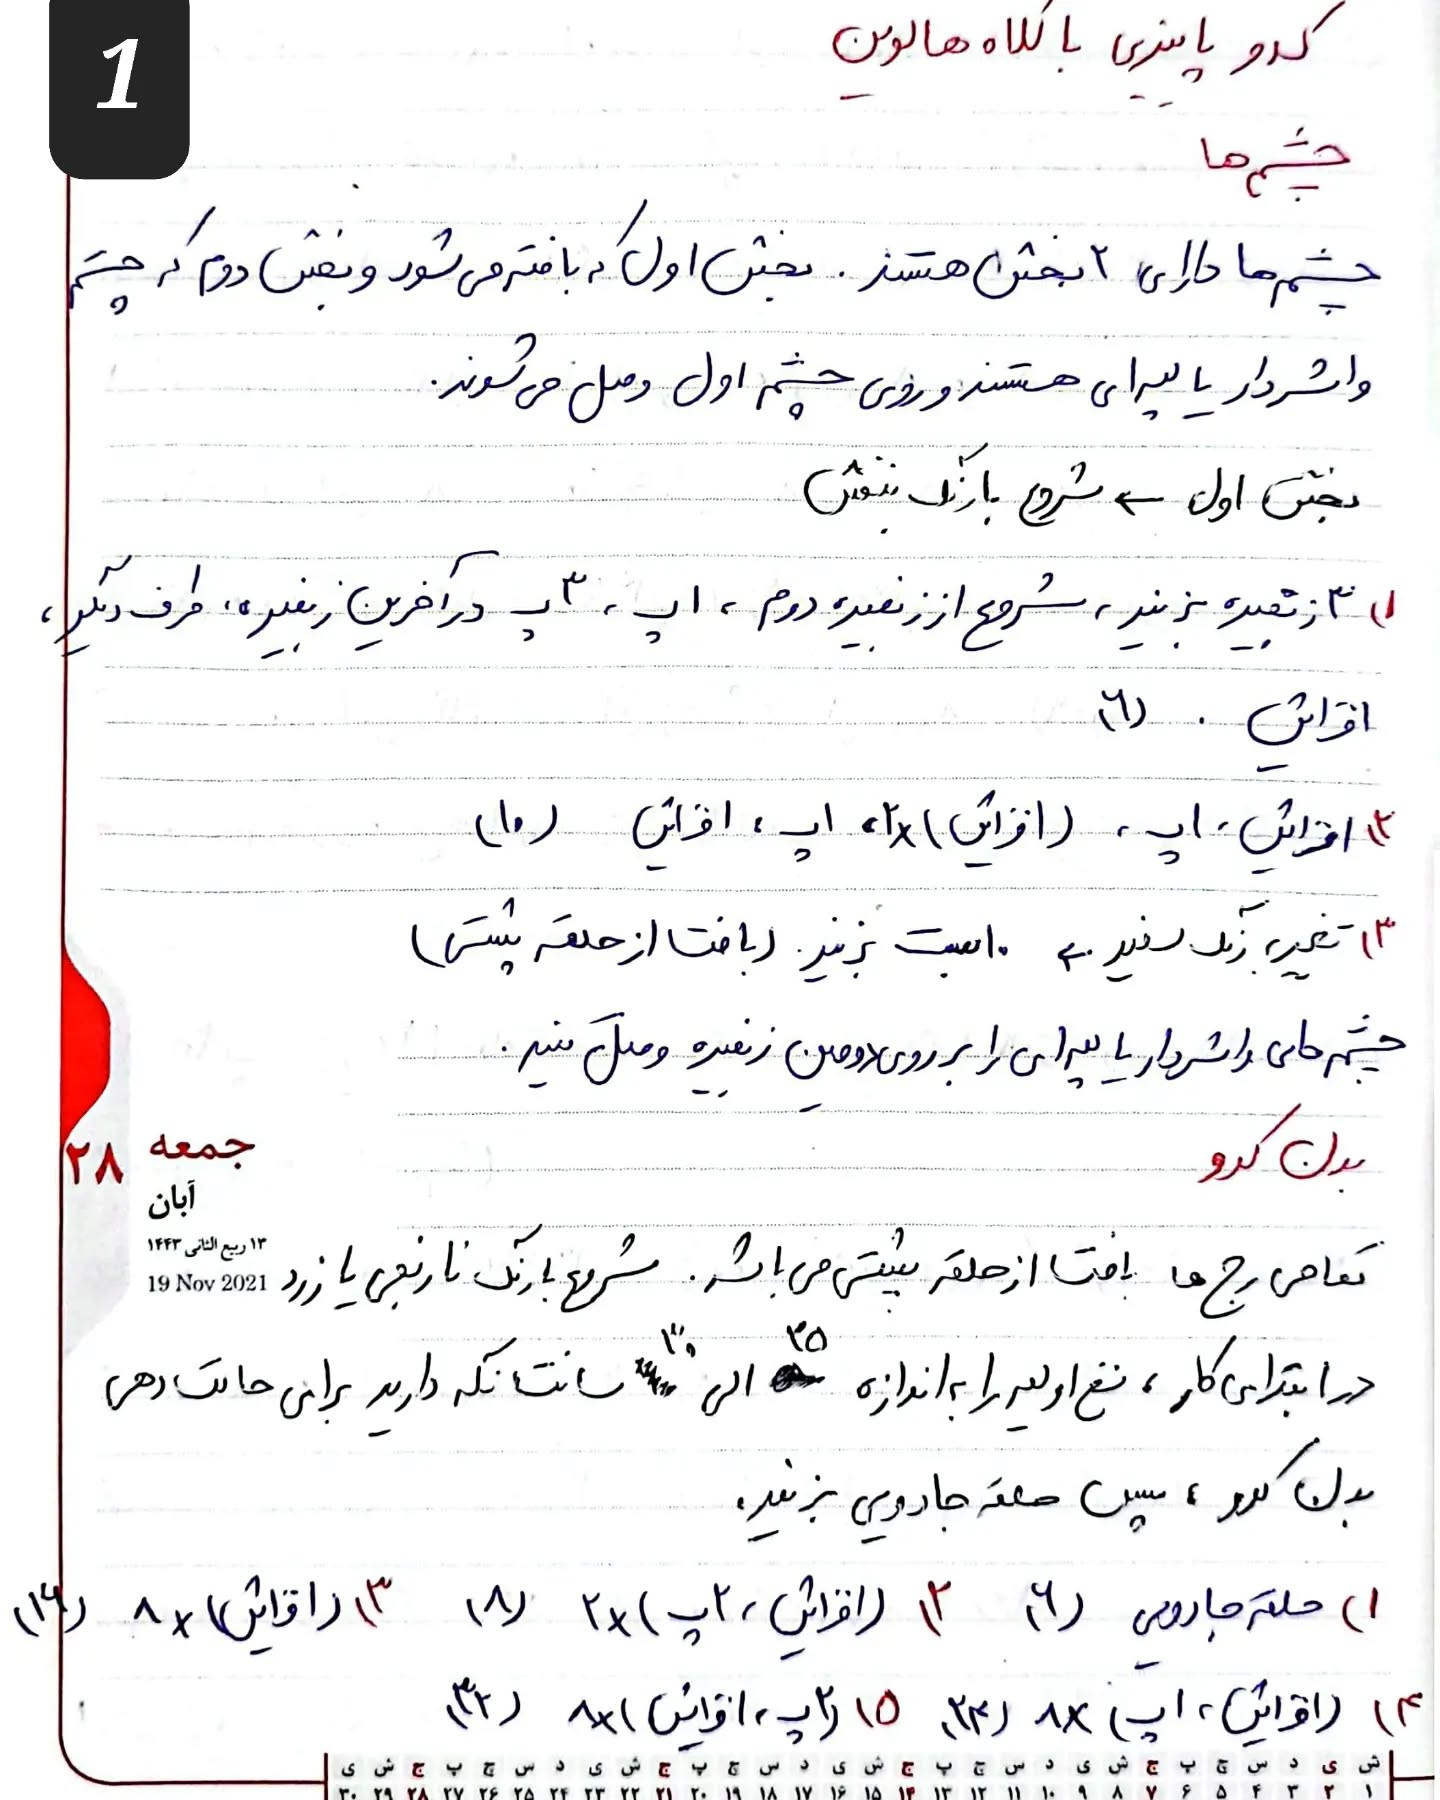 1
کدو پاییزی با کلاه هالوین
چشم‌ها
چشم‌ها دارای ۲ بخش هستند . بخش اول که بافته می‌شود و بخش دوم که چشم
واشردار یا لیبرای هستند و روی چشم اول وصل می‌شوند.
بخش اول ← شروع با رنگ بنفش
۱) ۳ زنجیره بزنید ، شروع از زنجیره دوم ، ۱پ ، ۳پ در آخرین زنجیره، طرف دیگر ،
افزایش . (۶)
۲) افزایش ، ۱پ ، (افزایش)×۲، ۱پ ، افزایش (۱۰)
۳) تغییر رنگ سفید ← ۱۰ بزنید. (بافت از حلقه پشتی)
چشم‌های واشردار یا را بر روی دومین زنجیره وصل کنید.
بدن کدو
جمعه ۲۸
آبان
۱۳ ربیع الثانی ۱۴۴۳
19 Nov 2021
تمامی رج ها بافت از حلقه پشتی می باشد. شروع با رنگ نارنجی یا زرد
در ابتدای کار ، نخ اولیه را به اندازه ۲۵ الی ۳۰ سانت نگه دارید برای حالت دهی
بدن کدو ، سپس حلقه جادویی بزنید.
۱) حلقه جادویی (۶) ۲) (افزایش ، ۲پ)×۲ (۸) ۳) (افزایش)×۸ (۱۶)
۴) (افزایش ، ۱پ)×۸ (۲۴) ۵) (۲پ ، افزایش)×۸ (۳۲)
ش ی د س چ پ ج ش ی د س چ پ ج ش ی د س چ پ ج ش ی د س چ پ ج ش ی
۱ ۲ ۳ ۴ ۵ ۶ ۷ ۸ ۹ ۱۰ ۱۱ ۱۲ ۱۳ ۱۴ ۱۵ ۱۶ ۱۷ ۱۸ ۱۹ ۲۰ ۲۱ ۲۲ ۲۳ ۲۴ ۲۵ ۲۶ ۲۷ ۲۸ ۲۹ ۳۰